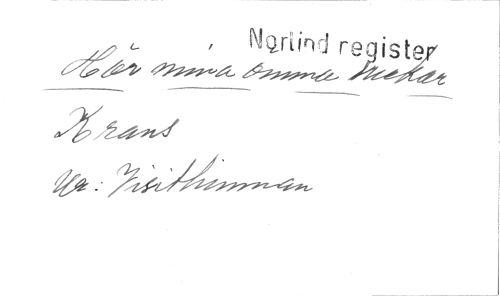 Norlind register
Hör mina omma suckar
Krans
Ur: Visithimman